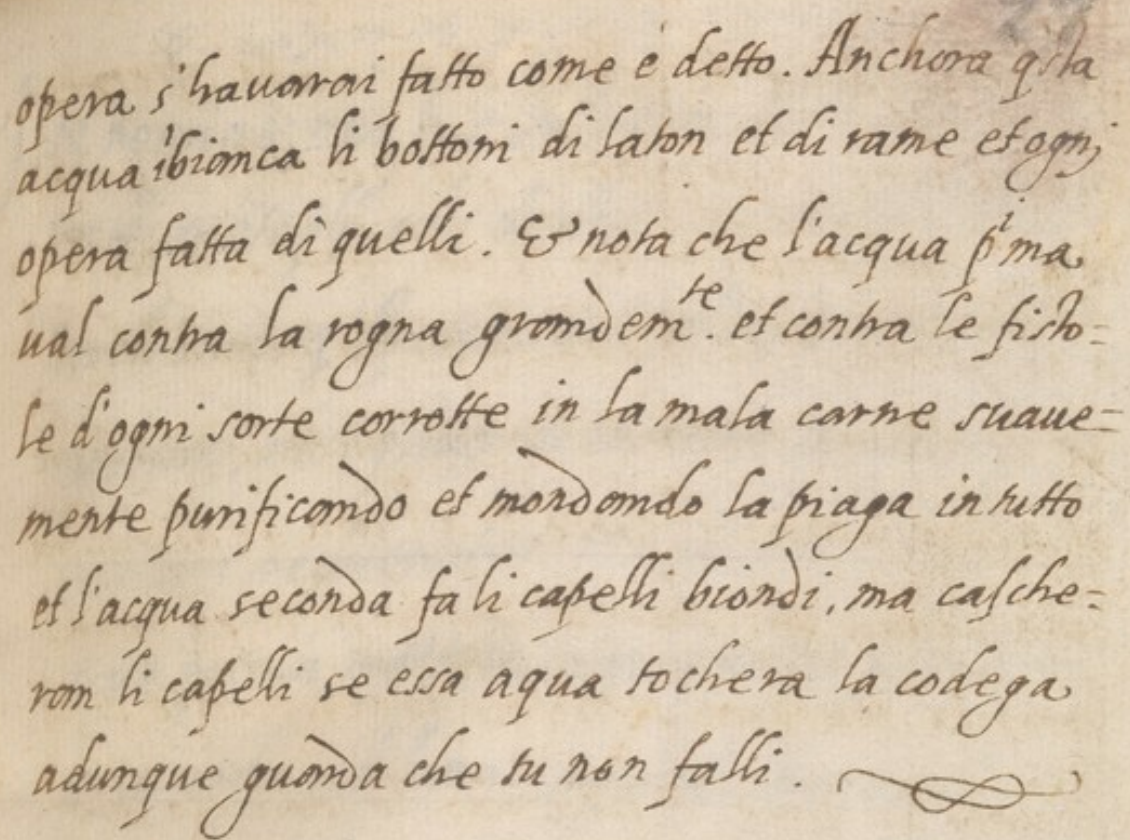 opera s'havarai fatto come è detto. Anchora q̃sta
acqua ĩbianca li bottoni di laton et di rame et ogni
opera fatta di quelli. & nota che l'acqua pima
val contra la rogna grandemte. et contra le fisto=
le d'ogni sorte corrotte in la mala carne suaue=
mente purificando et mondando la piaga in tutto
et l'acqua seconda fa li capelli biondi, ma casche=
ran li capelli se essa aqua tochera la codega
adunque guarda che tu non falli.